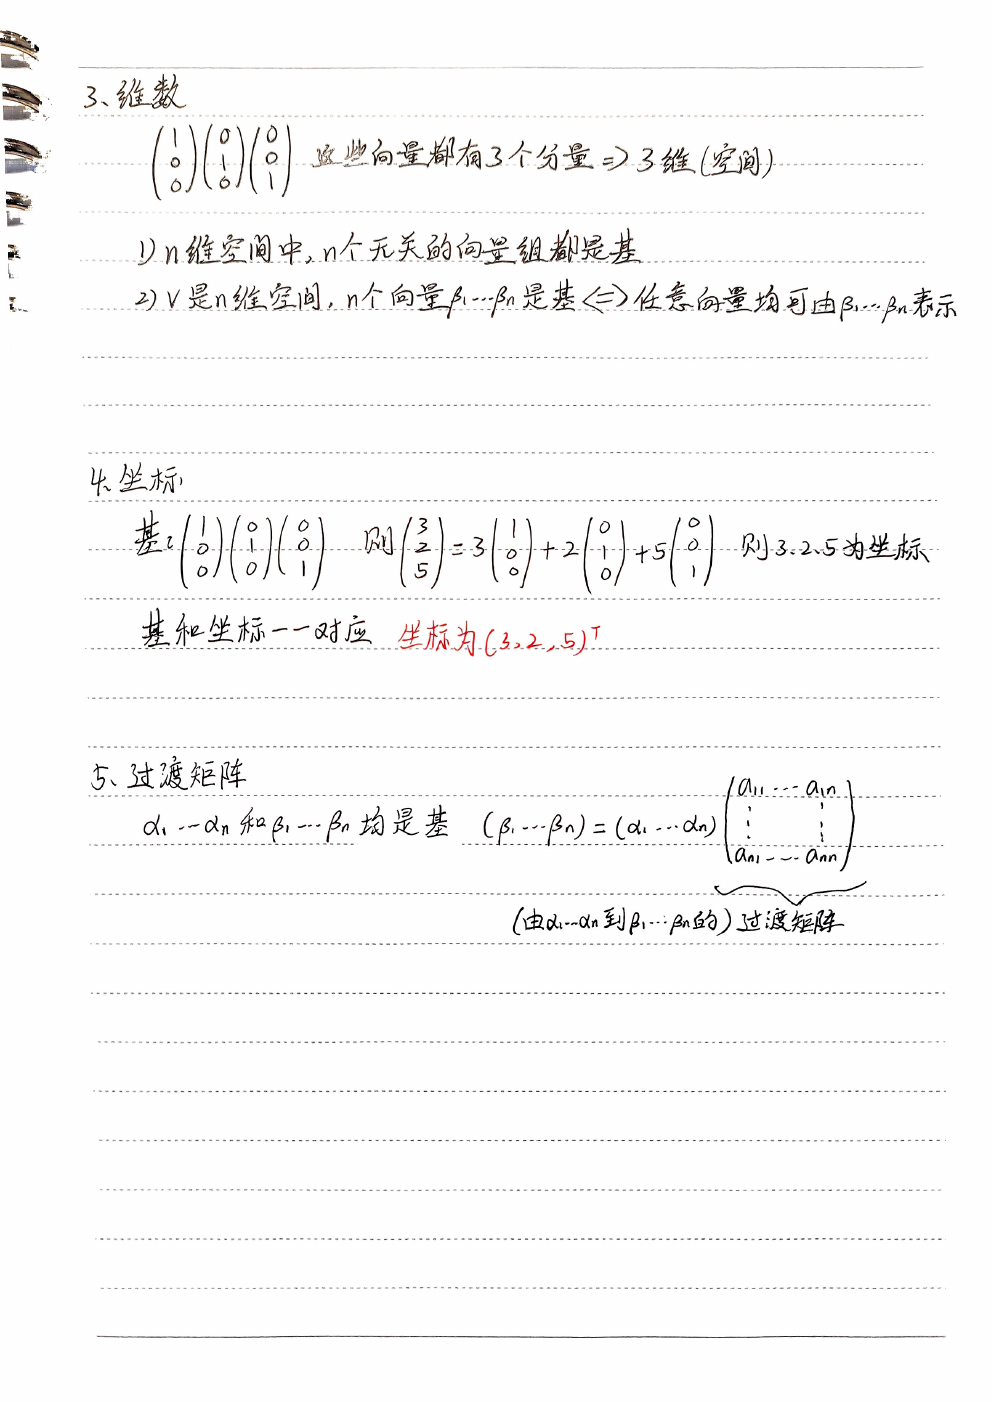 3、维数
(1 0 0) (0 1 0) (0 0 1) 这些向量都有3个分量 => 3维(空间)
1) n维空间中,n个无关的向量组都是基
2) V是n维空间,n个向量β₁…βₙ是基<=>任意向量均可由β₁…βₙ表示
4、坐标
基:(1 0 0) (0 1 0) (0 0 1) 则 (3 2 5) = 3(1 0 0) + 2(0 1 0) + 5(0 0 1) 则3、2、5为坐标
基和坐标一一对应 坐标为(3、2,5)ᵀ
5、过渡矩阵
α₁…αₙ和β₁…βₙ均是基 (β₁…βₙ)=(α₁…αₙ)(a₁₁ … a₁ₙ ⋮ ⋮ aₙ₁ … aₙₙ)
(由α₁…αₙ到β₁…βₙ的)过渡矩阵